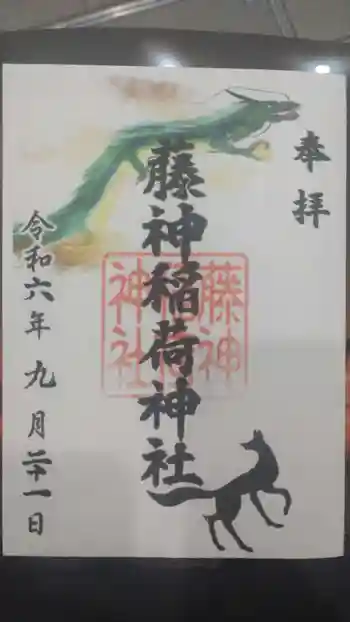 奉拝
藤神稲荷神社
藤神稲荷神社
令和六年九月二十一日